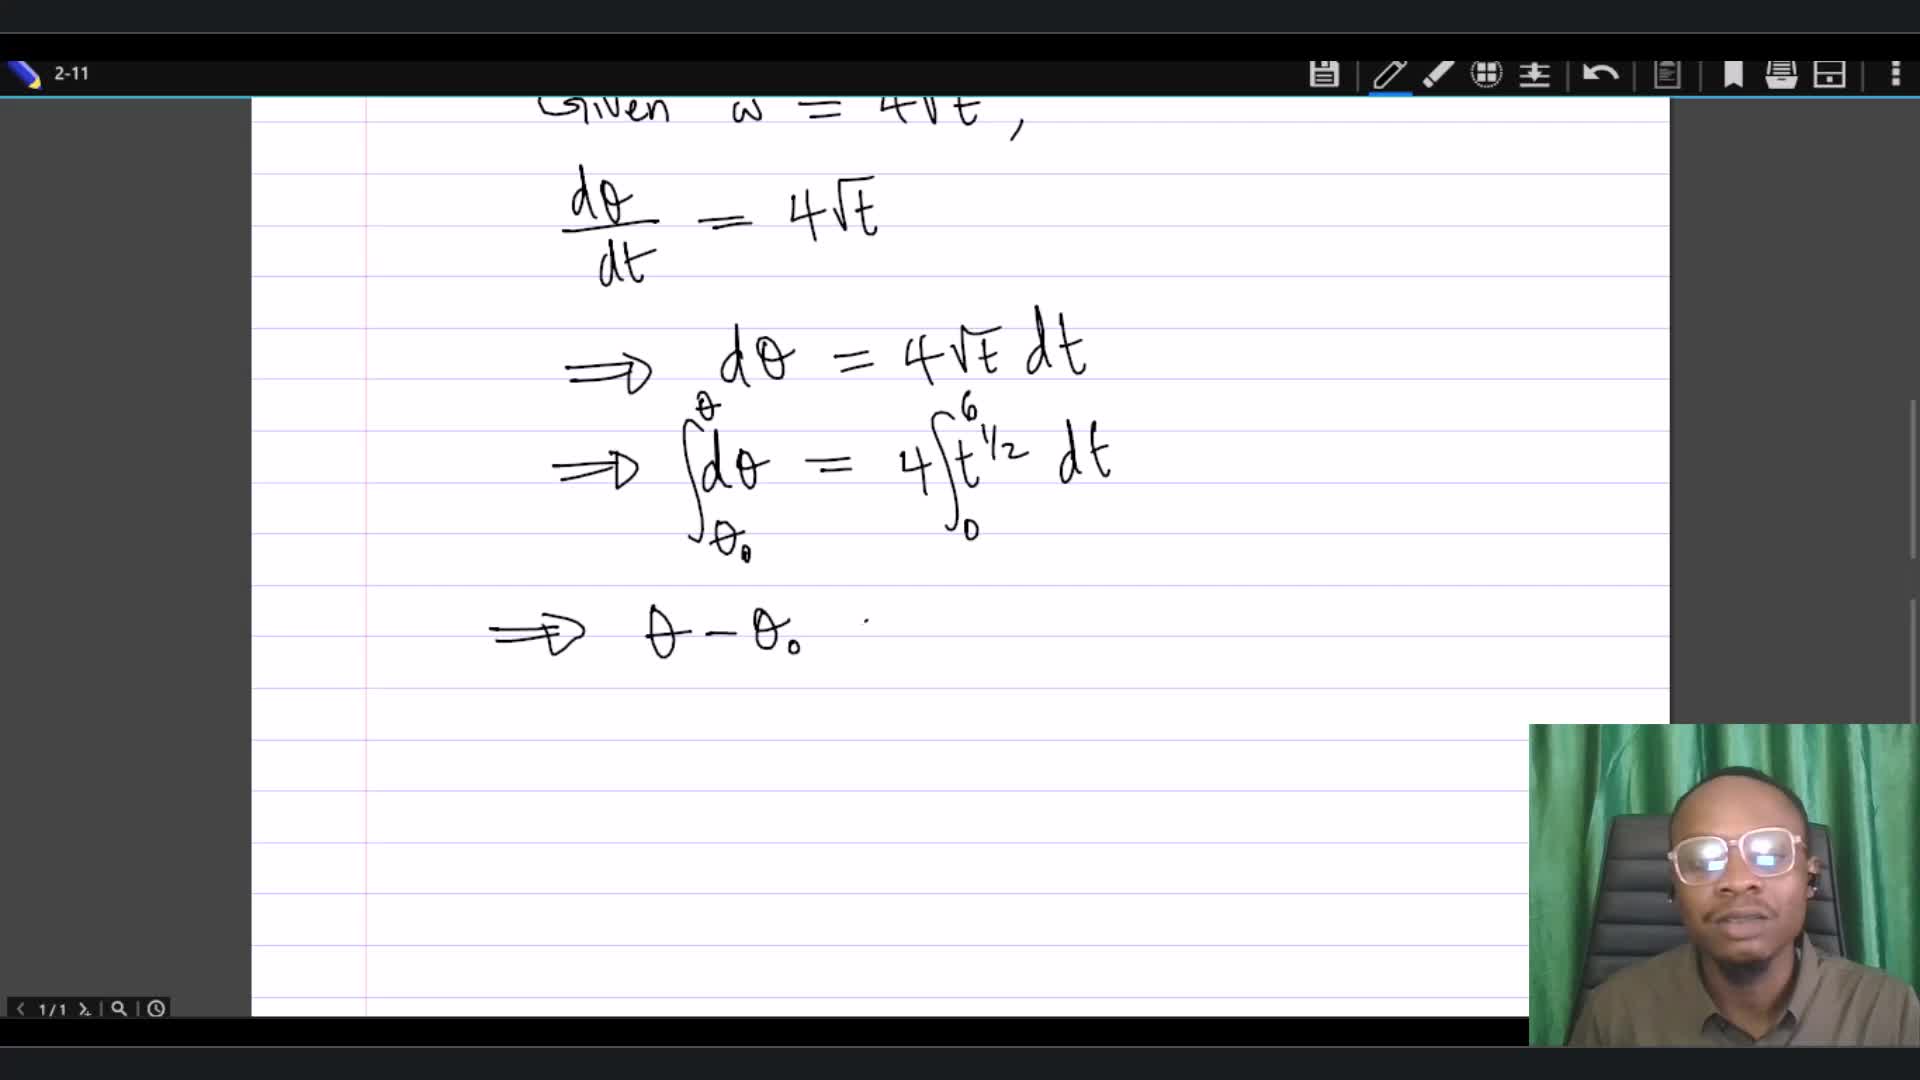 2-11
Given ω = 4√t,
dθ/dt = 4√t
⇒ dθ = 4√t dt
⇒ ∫_θ₀^θ dθ = 4∫_0^6 t^1/2 dt
⇒ θ - θ₀
1/1